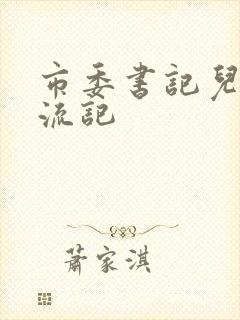 市委書記兒
流記
蕭家淇